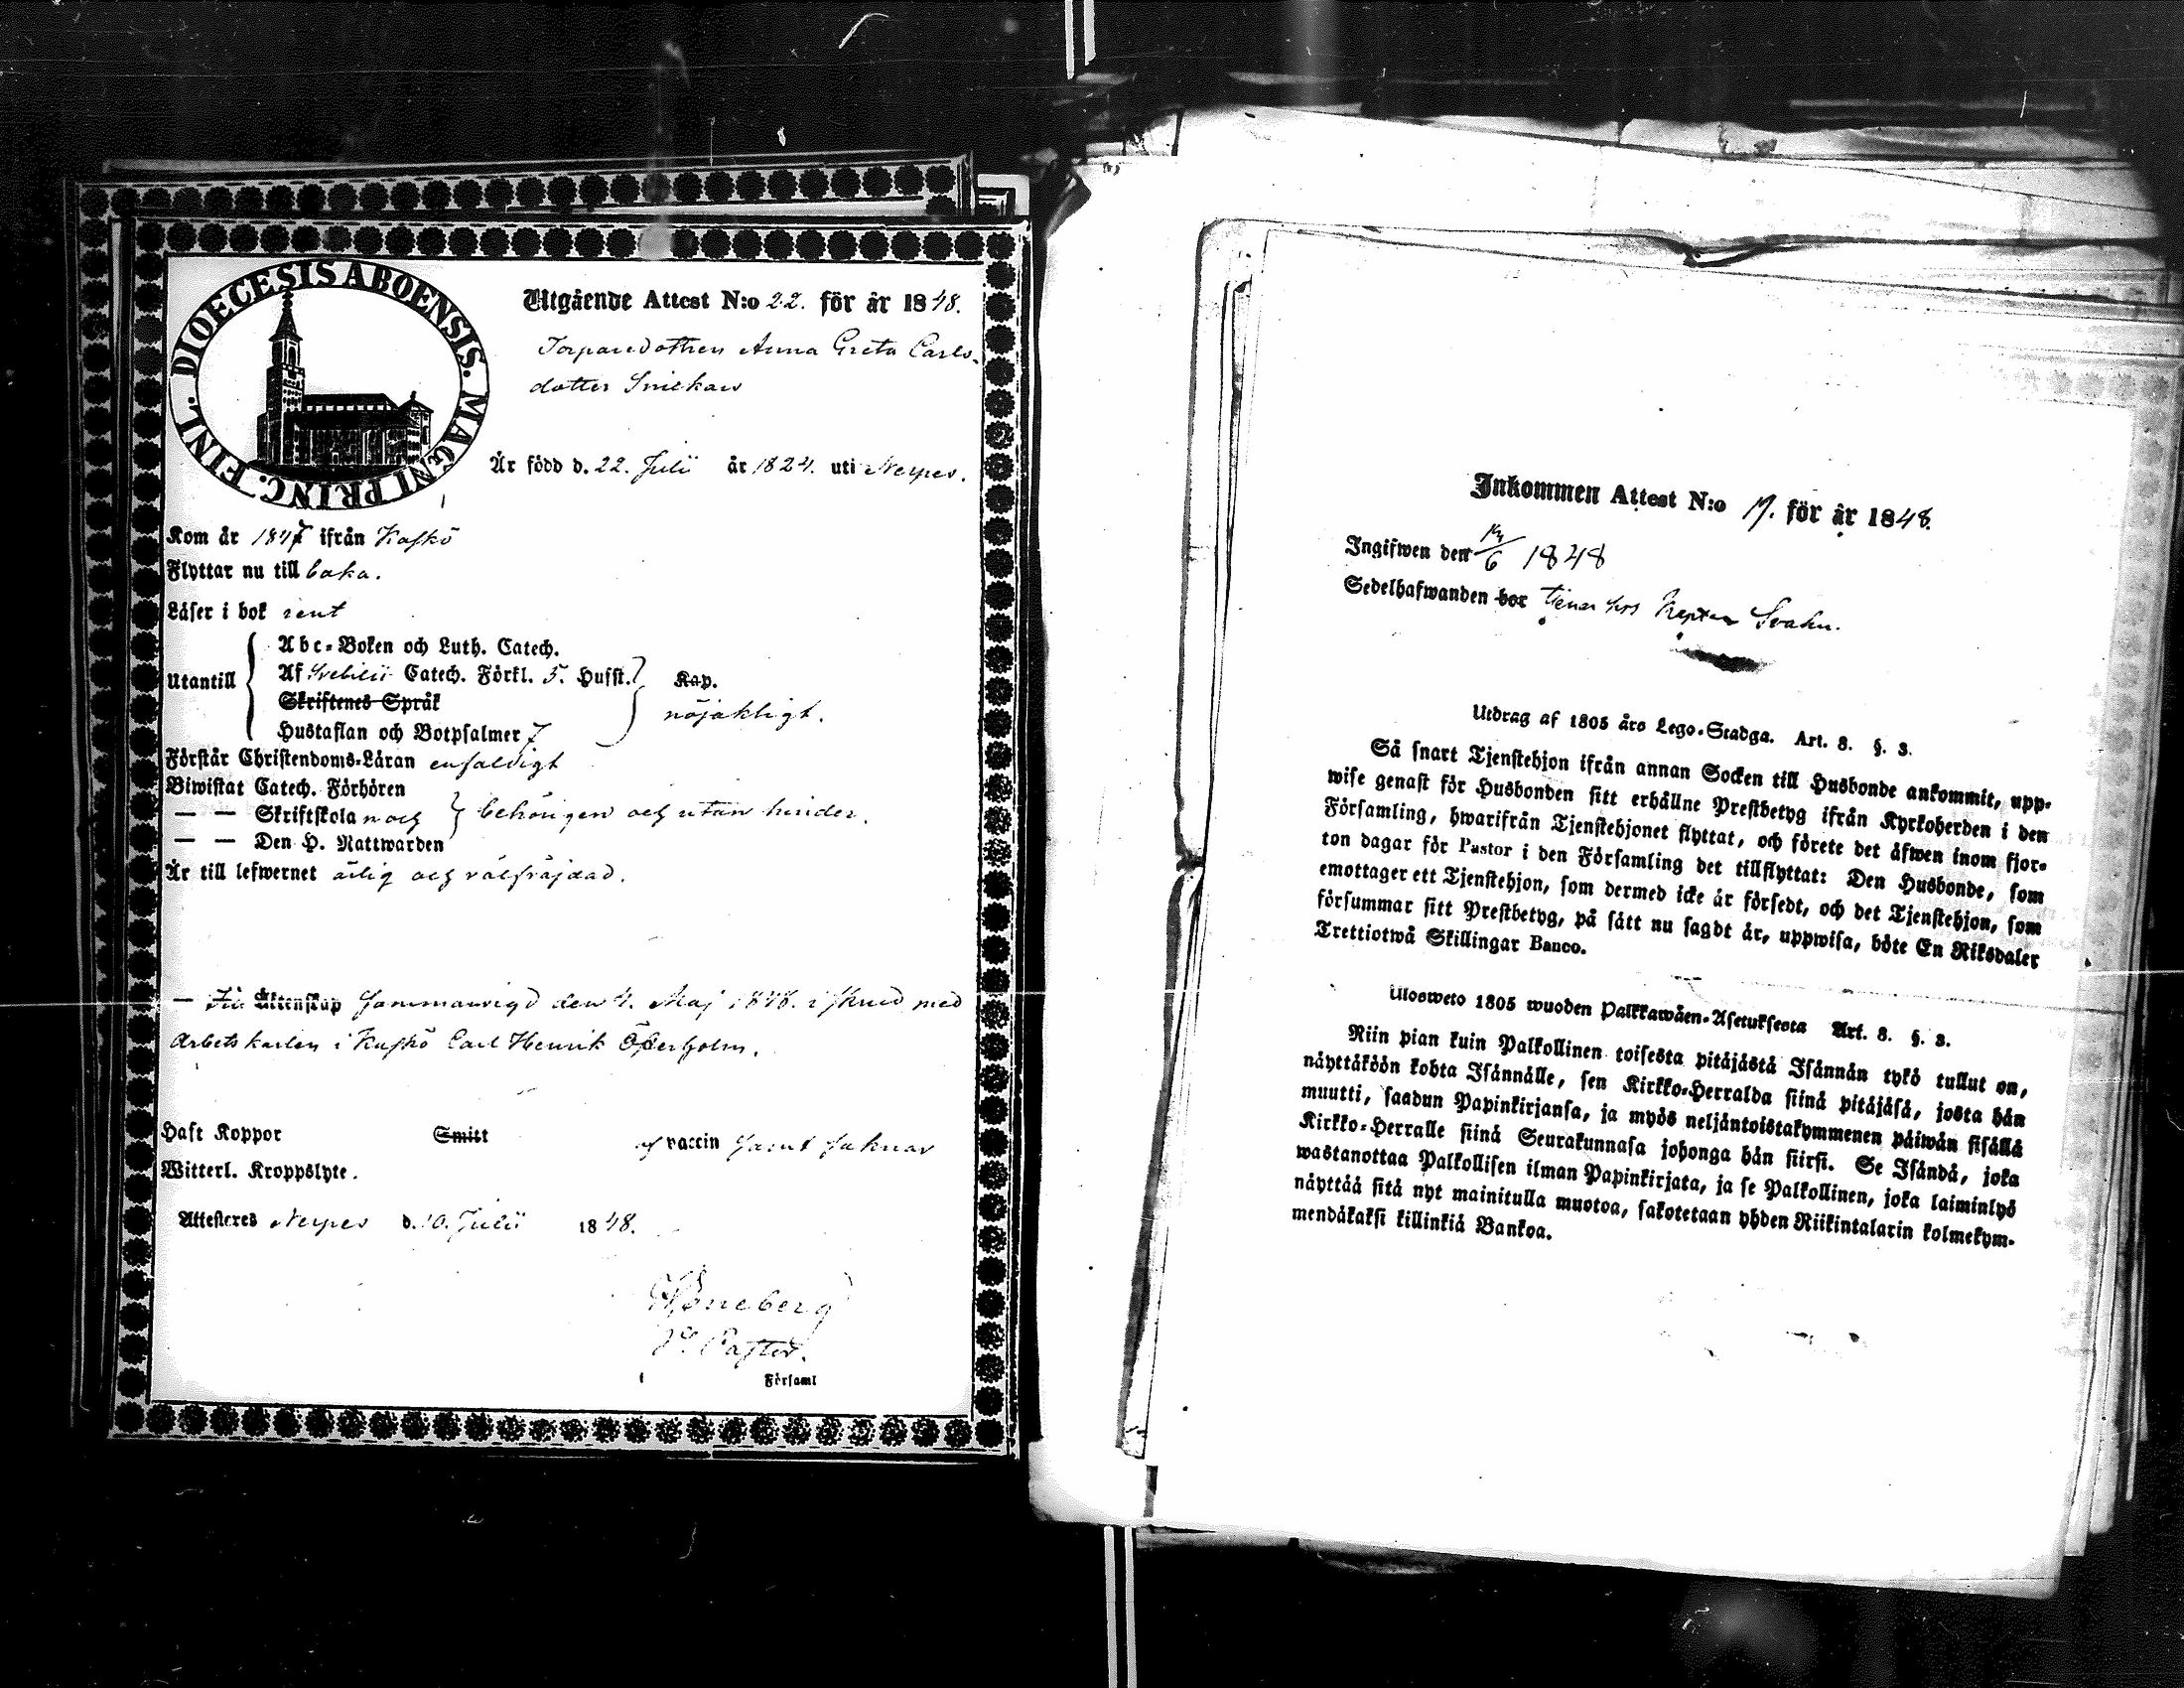 DIOECESIS ABOENSIS. MAGNI PRINC. FINL.
Utgående Attest N:o 22. för år 1848.
Torparedottren Anna Greta Carls-
dotter Snickars
Är född d. 22. Julii år 1824. uti Nerpes.
Kom år 1847 ifrån Kaskö
Flyttar nu till baka.
Läser i bok rent
Utantill
Abc-Boken och Luth. Catech.
Af Svebilii Catech. Förkl. 5. Hufst. Kap.
Skriftenes Språk
nöjaktligt.
Hustaflan och Botpsalmer 7
Förstår Christendoms-Läran enfaldigt
Biwistat Catech. Förhören
— — Skriftskola och behörigen och utan hinder.
— — Den H. Nattwarden
Är till lefwernet ärlig och välfräjdad.
— Äktenskap sammanvigd den 4. Maj 1848. med
Arbetskarlen i Kaskö Carl Henrik
Haft Koppor Smitt af vaccin samt saknar
Witterl. Kroppslyte.
Attesteras Nerpes d. 10. Julii 1848.
Pastor.
Församl
Inkommen Attest N:o 17. för år 1848.
Ingifwen den /6 1848
Sedelhafwanden bor tjenar hos Svahn.
Utdrag af 1805 års Lego-Stadga. Art. 8. §. 3.
Så snart Tjenstehjon ifrån annan Socken till Husbonde ankommit, upp-
wise genast för Husbonden sitt erhållne Prestbetyg ifrån Kyrkoherden i den
Församling, hwarifrån Tjenstehjonet flyttat, och förete det äfwen inom fjor-
ton dagar för Pastor i den Församling det tillflyttat: Den Husbonde, som
emottager ett Tjenstehjon, som dermed icke är försedt, och det Tjenstehjon, som
försummar sitt Prestbetyg, på sätt nu sagdt är, uppwisa, böte En Riksdaler
Trettiotwå Skillingar Banco.
Ulosweto 1805 wuoden Palkkawäen-Asetuksesta Art. 8. §. 3.
Niin pian kuin Palkollinen toisesta pitäjästä Isännän tykö tullut on,
näyttäköön kohta Isännälle, sen Kirkko-Herralda siinä pitäjäsä, josta hän
muutti, saadun Papinkirjansa, ja myös neljäntoistakymmenen päiwän sisällä
Kirkko-Herralle siinä Seurakunnasa johonga hän siirsi. Se Isändä, joka
wastanottaa Palkollisen ilman Papinkirjata, ja se Palkollinen, joka laiminlyö
näyttää sitä nyt mainitulla muotoa, sakotetaan yhden Riikintalarin kolmekym-
mendäkaksi killinkiä Bankoa.